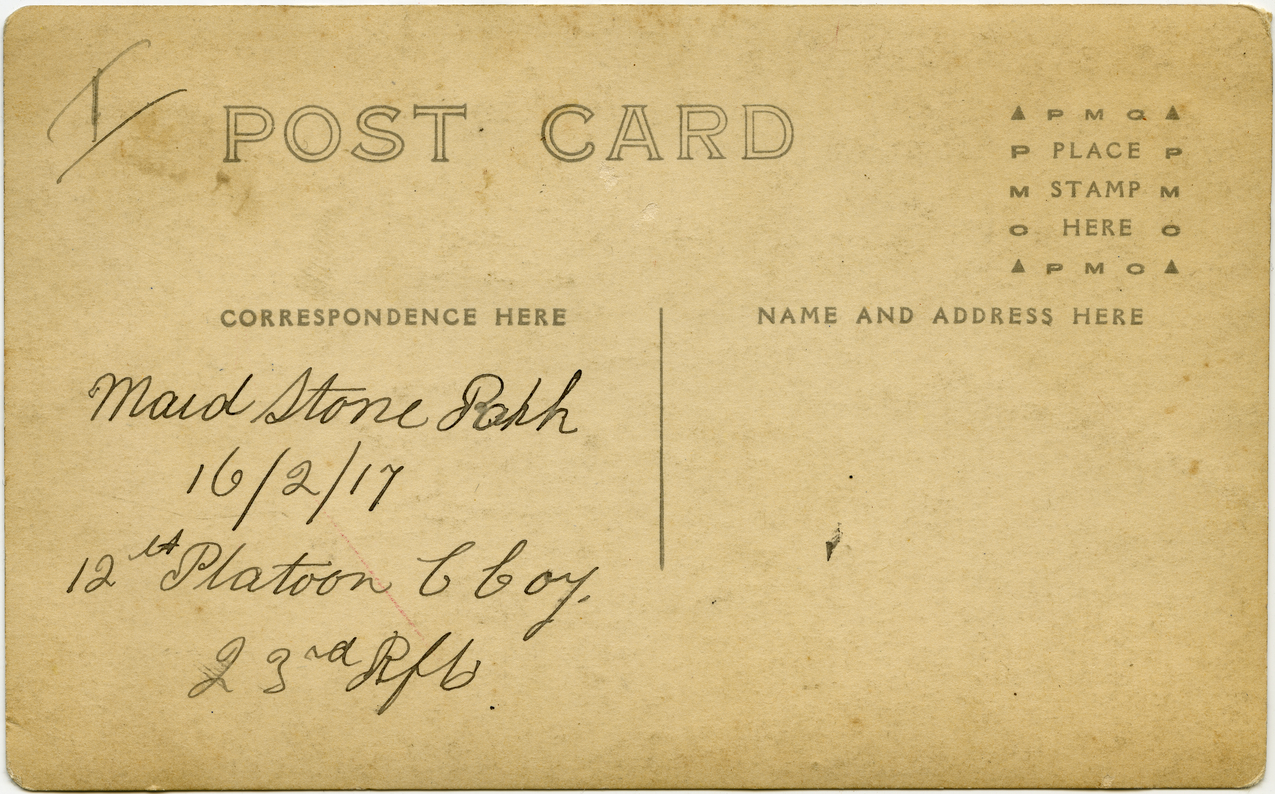 I
POST CARD
▲ P M O ▲
P PLACE P
M STAMP M
O HERE O
▲ P M O ▲
CORRESPONDENCE HERE
NAME AND ADDRESS HERE
Maid Stone
16/2/17
12 Platoon C Coy.
23rd Rfts